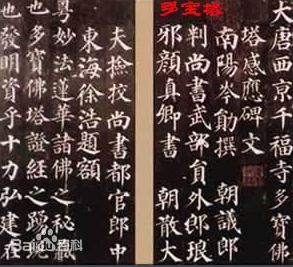 多宝塔
大唐西京千福寺多寶佛
塔感應碑文
南陽岑勛撰 朝議郎
判尚書武部員外郎琅
邪顏真卿書 朝散大
夫撿校尚書都官郎中
東海徐浩題額
粵妙法蓮華諸佛之秘藏
也多寶佛塔證經之踴現
也發明資乎十力弘建在
Baidu百科